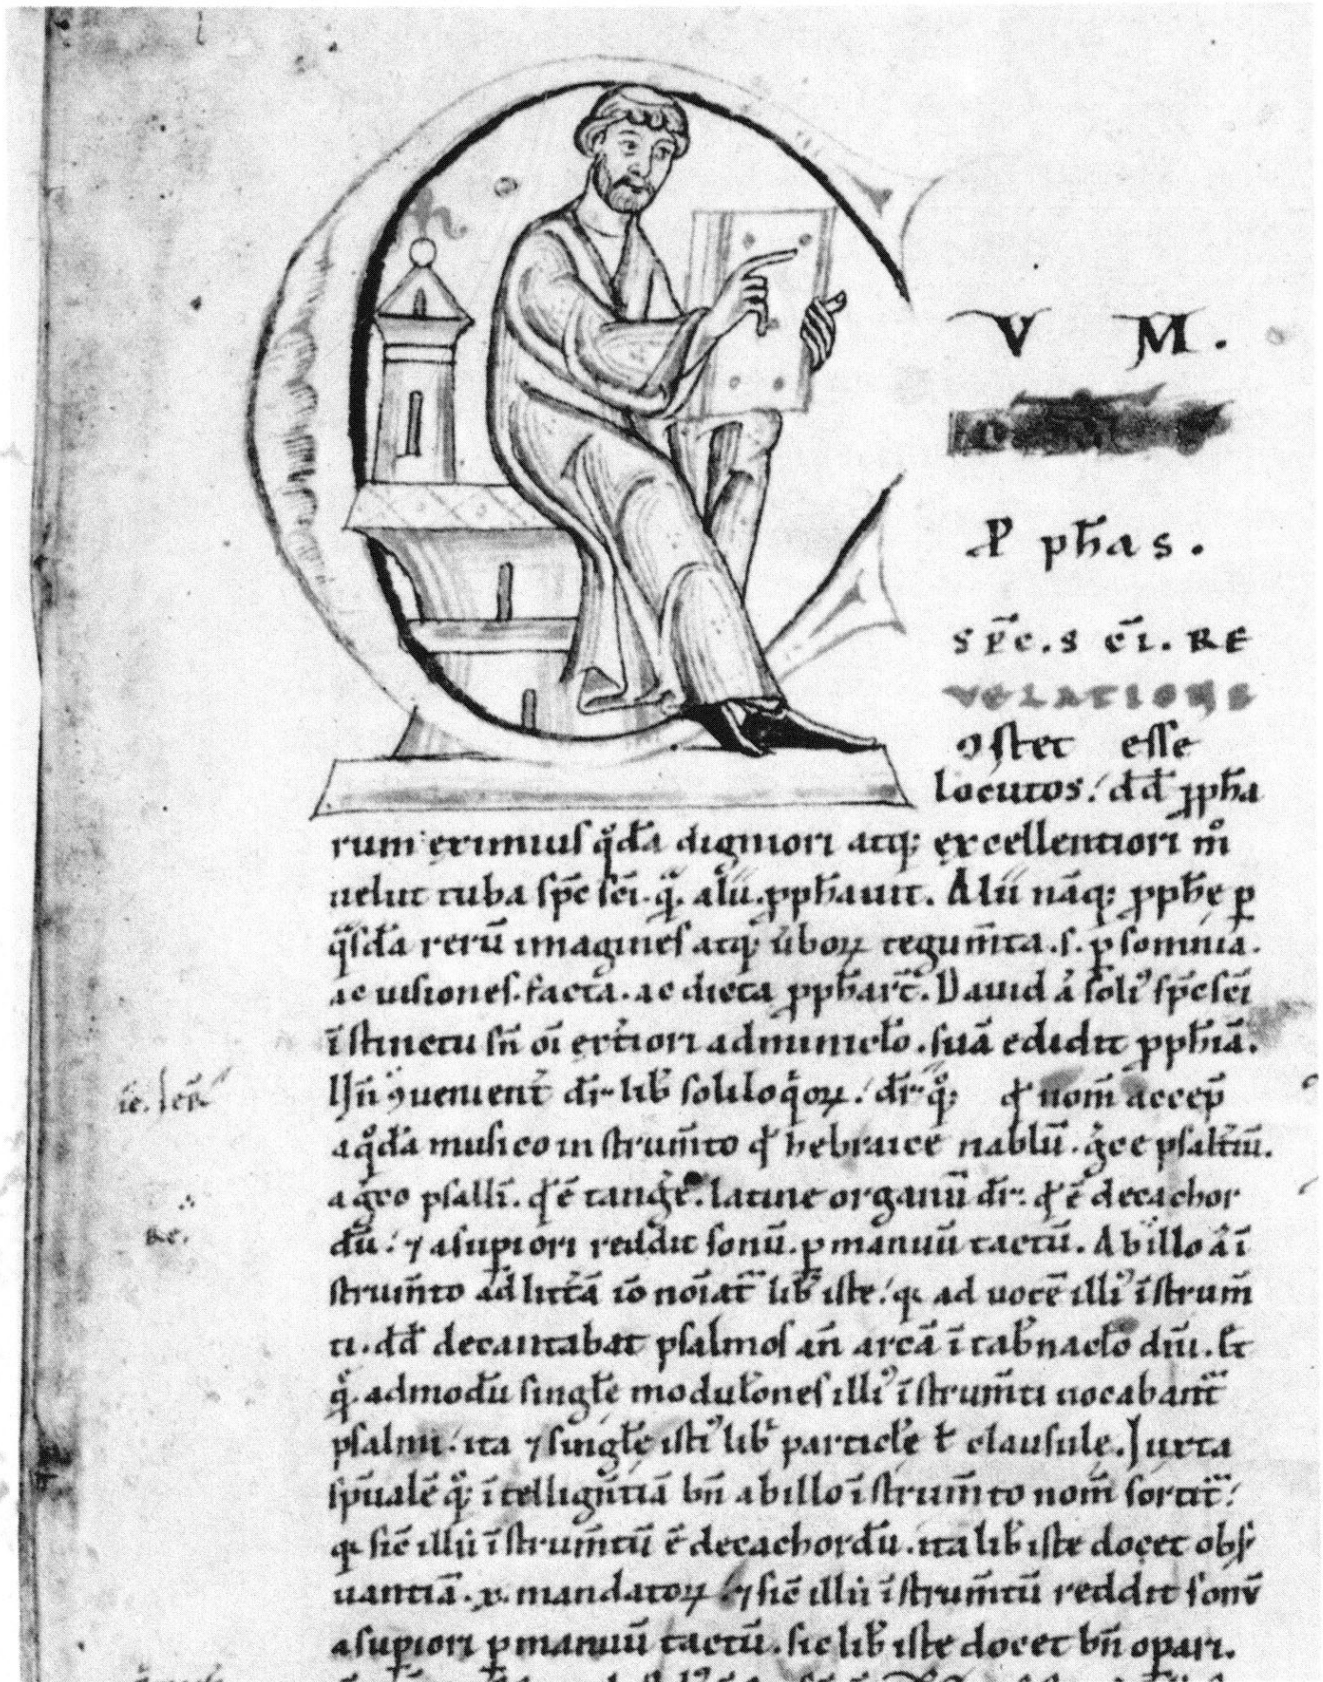 C V M.
P ph̄as.
SP̄C. S C̄I. RE
VELATIONE
ꝯstet esse
locutos. dd̄ ꝓph̄a
rum eximius qͦda digniori atq; excellentiori mͦ
uelut tuba sp̄c sc̄i. qͣ. alii. ꝓph̄auit. Alii nāq; ꝓph̄ę ꝑ
qͣsda rerū imagines atq; ūboꝝ tegum̄ta. s. ꝑ somnia.
ac uisiones. facta. ac dicta ꝓph̄art̄. Dauid ā soliꝰ sp̄c sc̄i
īstinctu sn̄ oī ext̄iori adminiclo. suā edidit ꝓph̄iā.
Un̄ ꝯuenient̄ dr̄ lib̄ soliloqͦoꝝ. dr̄ qͦ; qd̄ nom̄ accep̄
a qͦda musico instrum̄to qd̄ hebraice nablū. gͨce psalt̄iū.
a gͨco psallī. qd̄ ē tangͤe. latine organū dr̄. qd̄ ē decachor
dū. ⁊ a supiori reddit sonū. ꝑ manuū tactū. Ab illo ā ī
strum̄to ad litt̄ā iō noīat̄ lib̄ iste. qͥ ad uocē illiꝰ īstrum̄
ti. dd̄ decantabat psalmos an̄ arcā ī tab̄naclo dn̄i. Et
qͣ. admodū singl̄e modul̄ones illiꝰ īstrum̄ti uocabant̄
psalmi. ita ⁊ singl̄ę istiꝰ lib̄ particl̄ę l̄ clausulę. Juxta
sp̄ualē qͦ; ītellign̄tiā bn̄ ab illo īstrum̄to nom̄ sortit̄.
qͥ sic̄ illū īstrum̄tū ē decachordū. ita lib̄ iste docet obs̄
uantiā. x. mandatoꝝ. ⁊ sic̄ illū īstrum̄tū reddit sonū
a supiori ꝑ manuū tactū. sic lib̄ iste docet bn̄ oꝑari.